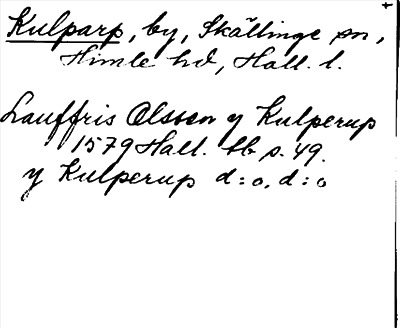 Kulparp, by, Skällinge sn,
Himle hd, Hall. l.
Lauffris Olsson y Kulperup
1579 Hall. tb s. 49.
y Kulperup d:o, d:o